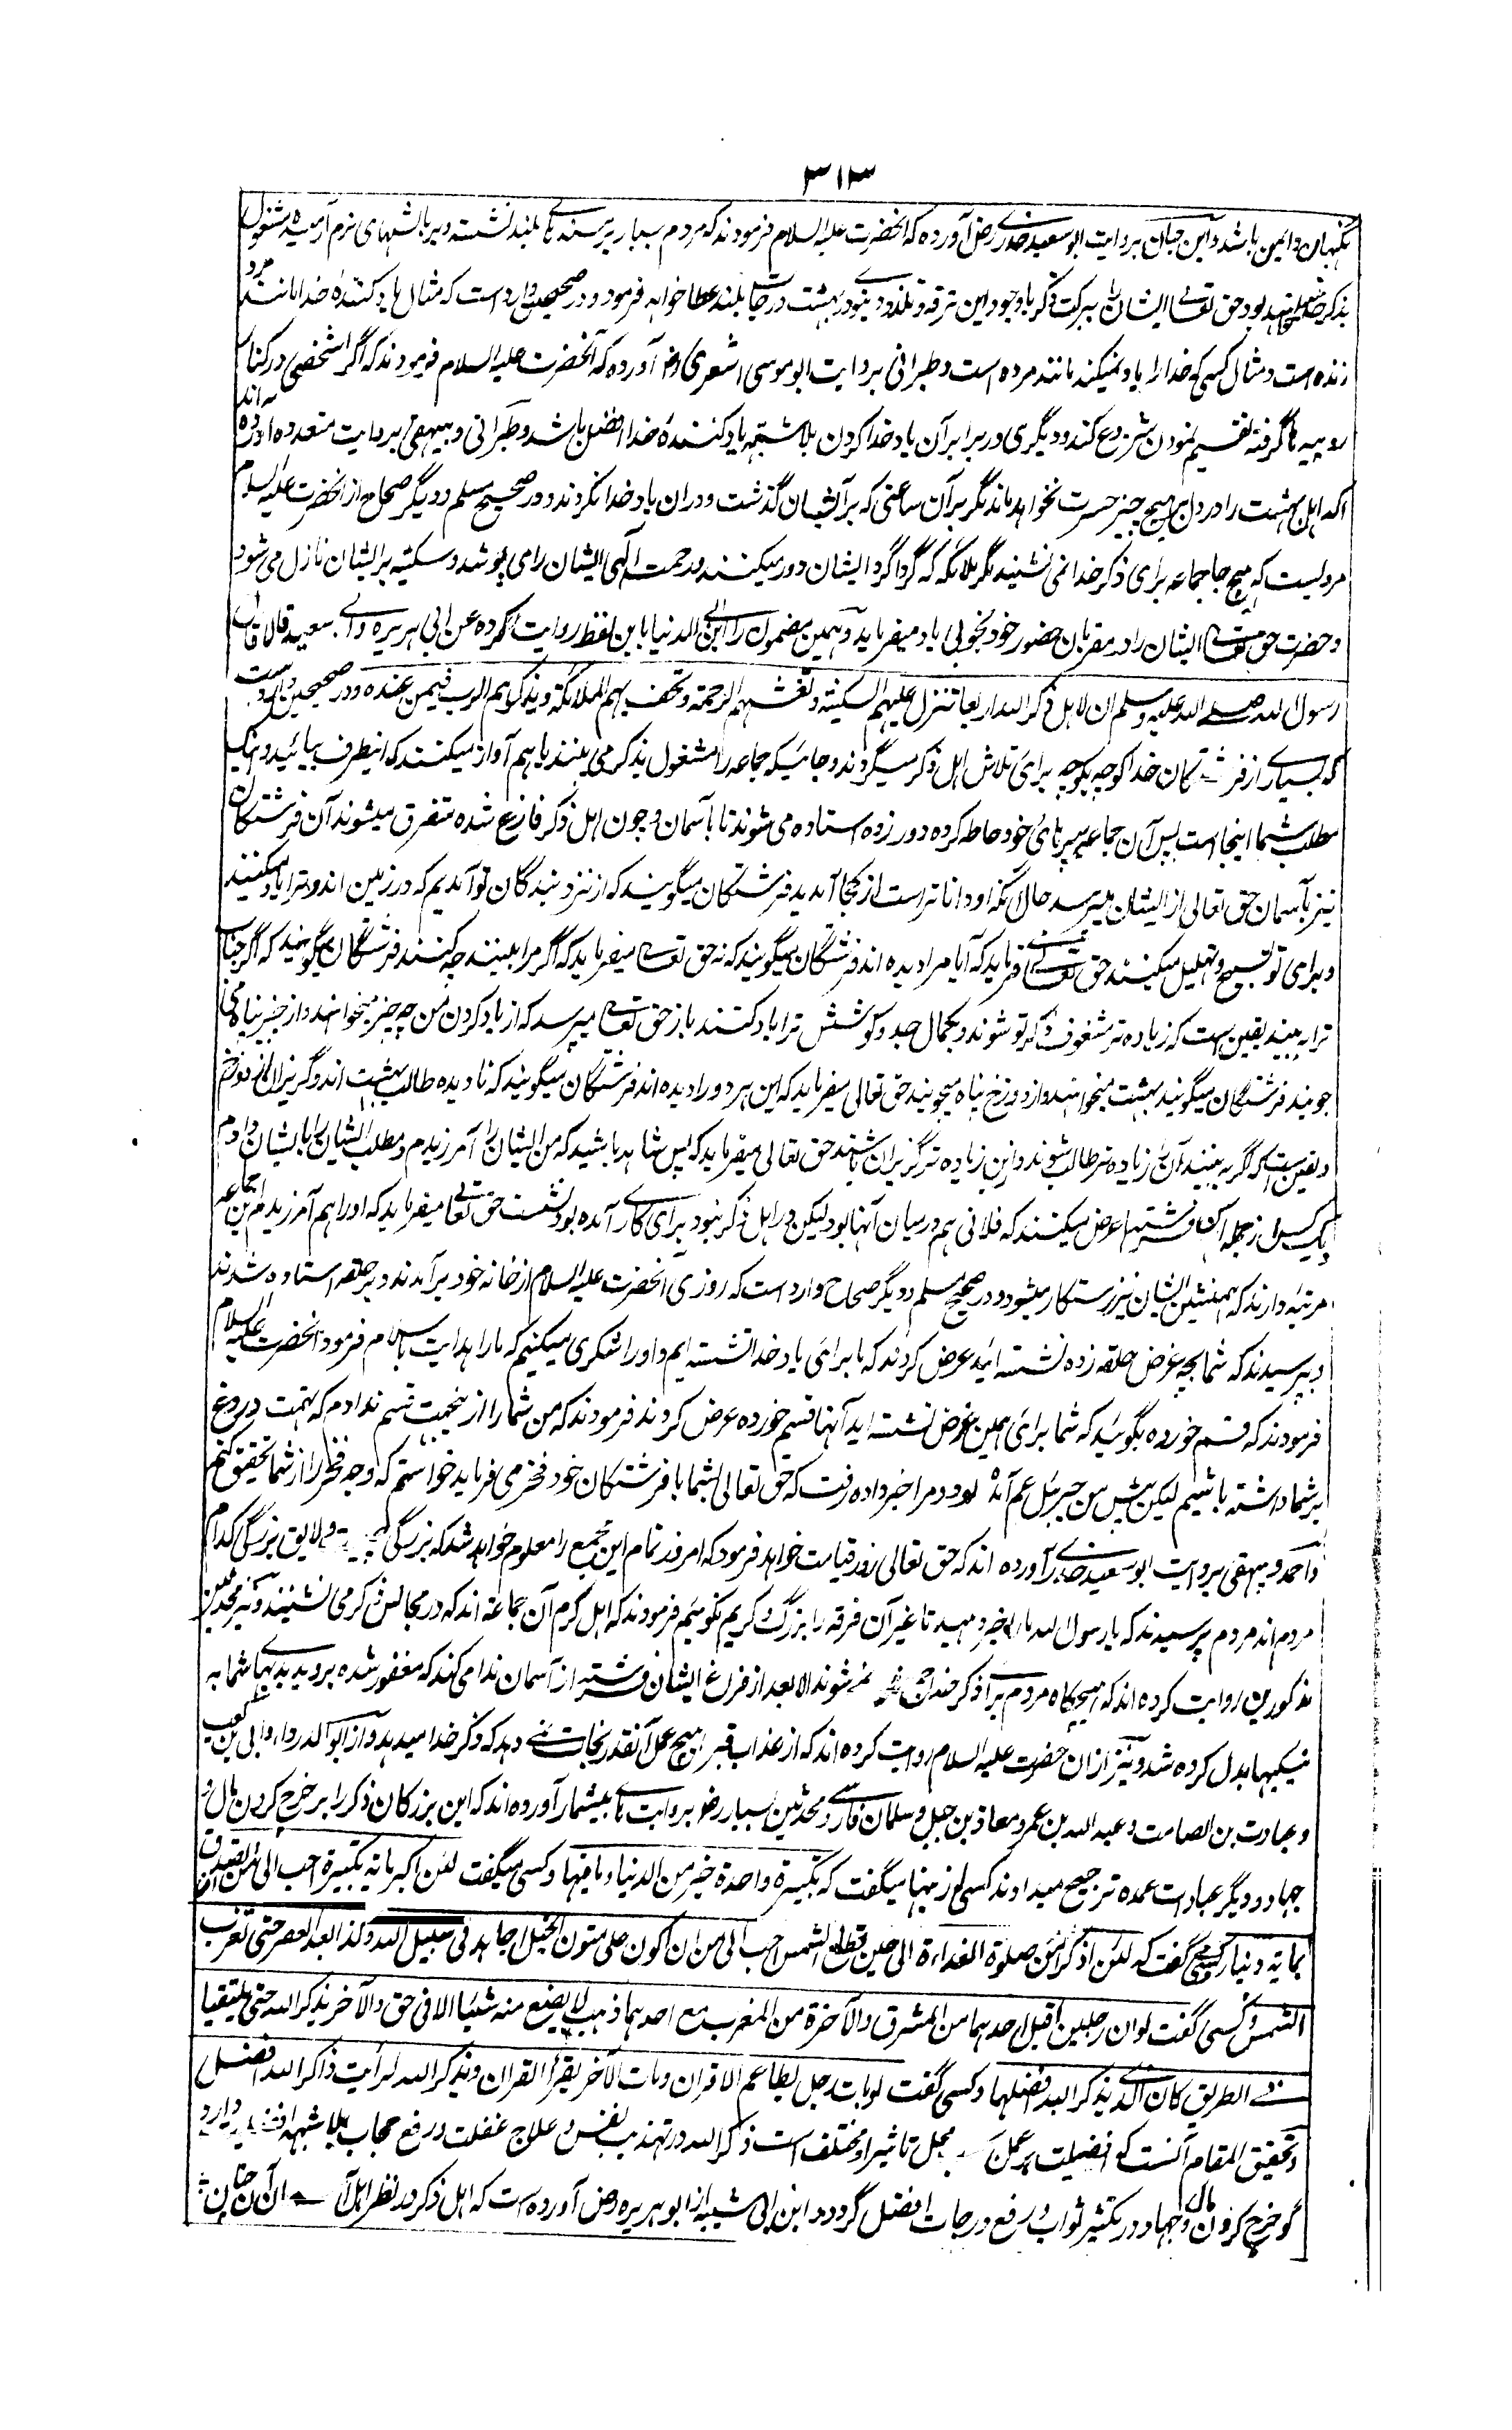 ۳۱۳
نگهبان و ایمن باشد و ابن حبان بروایت ابو سعید خدری رض آورده که آنحضرت علیه السلام فرمودند که مردم بسیار بر مسندهای بلند نشسته و بر بالشهای نرم آرمیده مشغول
بذکر خدا خواهند بود حق تعالی ایشان را ببرکت ذکر با وجود این ترفه و تلذذ دنیوی در بهشت درجات بلند عطا خواهد فرمود و در صحیحین وارد است که مثال یاد کننده خدا مانند مرد
زنده است و مثال کسی که خدا را یاد نمیکند مانند مرده است و طبرانی بروایت ابو موسی اشعری رض آورده که آنحضرت علیه السلام فرمودند که اگر شخصی در کنار
روپیه ها گرفته تقسیم نمودن شروع کند و دیگری در برابر آن یاد خدا کردن بلا شبهه یاد کنندهٔ خدا افضل باشد و طبرانی و بیهقی بروایت متعدده آورده اند
که اهل بهشت را در دل بر هیچ چیز حسرت نخواهد ماند مگر بر آن ساعتی که بر ایشان گذشت و در ان یاد خدا نکردند و در صحیح مسلم و دیگر صحاح از آنحضرت علیه السلام
مرویست که هیچ جا جماعه برای ذکر خدا نمی نشیند مگر ملائکه گرداگرد ایشان دور میکنند و رحمت الهی ایشان را می پوشد و سکینه بر ایشان نازل می شود
و حضرت حق تعالی ایشان را در مقربان حضور خود بخوبی یاد میفرماید و همین مضمون را ابن ابی الدنیا باین لفظ روایت کرده عن ابی هریرة و ابی سعید قالا قال
رسول الله صلی الله علیه وسلم ان لاهل ذکر الله اربعا تنزل علیهم السکینة و تغشیهم الرحمة و تحف بهم الملائکة و یذکرهم الرب فیمن عنده و در صحیحین وارد است
که بسیاری از فرشتگان خدا کوچه بکوچه برای تلاش اهل ذکر میگردند و جائیکه جماعه را مشغول بذکر می بینند باهم آواز میکنند که اینطرف بیائید و اینک
مطلب شما اینجا است پس آن جماعه را بپرهای خود احاطه کرده دور زده استاده می شوند تا بآسمان و چون اهل ذکر فارغ شده متفرق میشوند آن فرشتگان
نیز بآسمان حق تعالی از ایشان میپرسد حال آنکه او داناتر است از کجا آمدید فرشتگان میگویند که از نزد بندگان تو آمدیم که در زمین اند و ترا یاد میکنند
و برای تو تسبیح و تهلیل میکنند حق تعالی میفرماید که آیا مرا دیده اند فرشتگان میگویند که نه حق تعالی میفرماید که اگر مرا بینند چه کنند فرشتگان میگویند که اگر جناب
ترا به بینند یقین است که زیاده تر مشغوف ذکر تو شوند و بکمال جد و کوشش ترا یاد کنند باز حق تعالی میپرسد که از یاد کردن من چه چیز میخواهند و از چه چیز پناه می
جویند فرشتگان میگویند بهشت میخواهند و از دوزخ پناه میجویند حق تعالی میفرماید که این هر دو را دیده اند فرشتگان میگویند که نادیده طالب بهشت اند و گریزان از دوزخ
و یقین است که اگر به بینند آن را زیاده تر طالب شوند و ازین زیاده تر گریزان باشند حق تعالی میفرماید که پس شاهد باشید که من ایشان را آمرزیدم و مطلب ایشان را بایشان دادم
یک کس از جمله آن فرشتها عرض میکنند که فلانی هم درمیان آنها بود لیکن در اهل ذکر نبود برای کاری آمده بود نشست حق تعالی میفرماید که او را هم آمرزیدم این جماعه
مرتبه دارند که همنشین ایشان نیز رستگار میشود و در صحیح مسلم و دیگر صحاح وارد است که روزی آنحضرت علیه السلام از خانه خود برآمدند و بر حلقه استاده شدند
و پرسیدند که شما بچه غرض حلقه زده نشسته اید عرض کردند که ما برای یاد خدا نشسته ایم و او را شکر میکنیم که ما را هدایت باسلام فرمود آنحضرت علیه السلام
فرمودند که قسم خورده بگوئید که شما برای همین غرض نشسته اید آنها قسم خورده عرض کردند فرمودند که من شما را ازینجهت قسم ندادم که تهمت دروغ
بر شما داشته باشیم لیکن پیش من جبرئیل ع م آمده بود و مرا خبر داده رفت که حق تعالی بشما با فرشتگان خود فخر می فرماید خواستم که وجه فخر را از شما تحقیق کنم
و احمد و بیهقی بروایت ابو سعید خدری آورده اند که حق تعالی روز قیامت خواهد فرمود که امروز تمام این مجمع را معلوم خواهد شد که بزرگی چیست و لایق بزرگی کدام
مردم اند مردم پرسیدند که یا رسول الله ما را خبر دهید تا غیر آن فرقه را بزرگ و کریم نگوئیم فرمودند که اهل کرم آن جماعة اند که در مجالس ذکر می نشینند و نیز محدثین
مذکورین روایت کرده اند که هیچگاه مردم برای ذکر خدا جمع نمی شوند الا بعد از فراغ ایشان فرشته از آسمان ندا می کند که مغفور شده بروید بدیهای شما به
نیکیها بدل کرده شد و نیز از ان حضرت علیه السلام روایت کرده اند که از عذاب قبر هیچ عمل آنقدر نجات نمی دهد که ذکر خدا میدهد و از ابو الدرداء و ابی بن کعب
و عبادت بن الصامت و عبد الله بن عمر و معاذ بن جبل و سلمان فارسی و محدثین بسیار رض بروایت های بیشمار آورده اند که این بزرگان ذکر را بر خرج کردن مال و
جهاد و دیگر عبادت عمده ترجیح میدادند کسی از ینها میگفت که تکبیرة واحدة خیر من الدنیا و ما فیها و کسی میگفت لئن اکبر مایة تکبیرة احب الی من ان اتصدق
بمایة دینار و کسی می گفت که لئن اذکر الله من صلوة الغداة الی حین تطلع الشمس احب الی من ان اکون علی متون الخیل اجاهد فی سبیل الله و کذا بعد العصر حتی تغرب
الشمس و کسی گفت لو ان رجلین اقبل احدهما من المشرق والآخرة من المغرب مع احدهما ذهب لا یضع منه شیئا الا فی حق والآخر یذکر الله حتی یلتقیا
فی الطریق کان الذی یذکر الله افضلهما و کسی گفت لو بات رجل یطاعم الاقران و بات الآخر یقرأ القران و یذکر الله لرأیت ذاکر الله افضل
و تحقیق المقام آنست که افضیلت هر عمل محل تاثیر او مختلف است ذکر الله در تهذیب نفس و علاج غفلت و رفع حجاب بلا شبهه دارد
گو خرج کردن مال و جهاد در تکثیر ثواب و رفع درجات افضل گردد و ابن ابی شیبه از ابو هریره رض آورده است که اهل ذکر در نظر اهل آن چنان